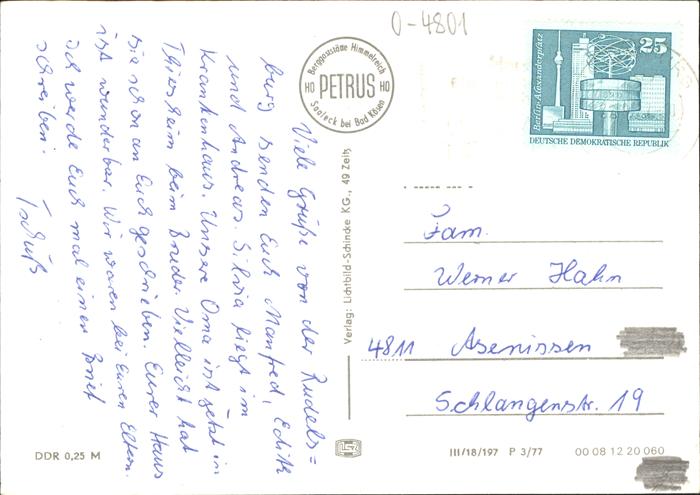 Viele Grüße von der Rudels=
burg senden Euch Manfred, Edith
und Andreas. Silvia liegt im
Krankenhaus. Unsere Oma ist jetzt in
beim Bruder. Vielleicht hat
sie schon an Euch geschrieben. Eurer Haus
ist wunderbar. Wir waren bei Euren Eltern.
Ich werde Euch mal einen Brief
schreiben.
Tschüß
O-4801
Berggaststätte Himmelreich
HO PETRUS HO
Saaleck bei Bad Kösen
25
Berlin-Alexanderplatz
DEUTSCHE DEMOKRATISCHE REPUBLIK
Verlag: Lichtbild-Schincke KG., 49 Zeitz
Fam.
Werner Hahn
4811 Asenissen
Schlangenstr. 19
DDR 0,25 M
III/18/197 P 3/77 00 08 12 20 060